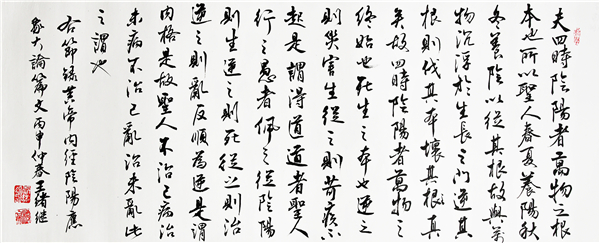 夫四時陰陽者萬物之根
本也所以聖人春夏養陽秋
冬養陰以從其根故與萬
物沉浮於生長之門逆其
根則伐其本壞其真
矣故四時陰陽者萬物之
終始也死生之本也逆之
則災害生從之則苛疾不
起是謂得道道者聖人
行之愚者佩之從陰陽
則生逆之則死從之則治
逆之則亂反順為逆是謂
內格是故聖人不治已病治
未病不治已亂治未亂此
之謂也
右節錄黃帝內經陰陽應
象大論篇文丙申仲春王緒继